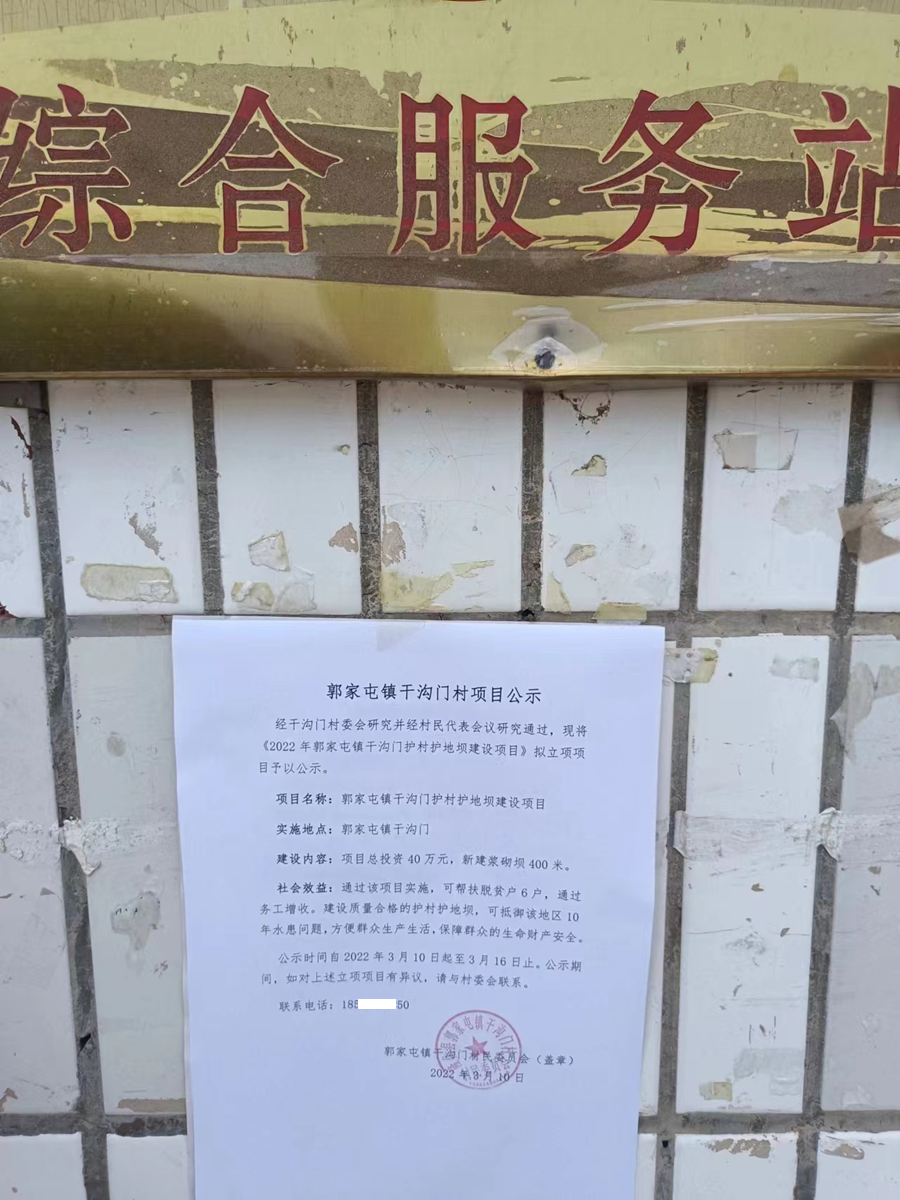 综合服务站
郭家屯镇干沟门村项目公示
经干沟门村委会研究并经村民代表会议研究通过，现将
《2022年郭家屯镇干沟门护村护地坝建设项目》拟立项项
目予以公示。
项目名称：郭家屯镇干沟门护村护地坝建设项目
实施地点：郭家屯镇干沟门
建设内容：项目总投资40万元，新建浆砌坝400米。
社会效益：通过该项目实施，可帮扶脱贫户6户，通过
务工增收。建设质量合格的护村护地坝，可抵御该地区10
年水患问题，方便群众生产生活，保障群众的生命财产安全。
公示时间自2022年3月10日起至3月16日止。公示期
间，如对上述立项项目有异议，请与村委会联系。
联系电话：185 50
郭家屯镇干沟门村民委员会（盖章）
2022年3月10日